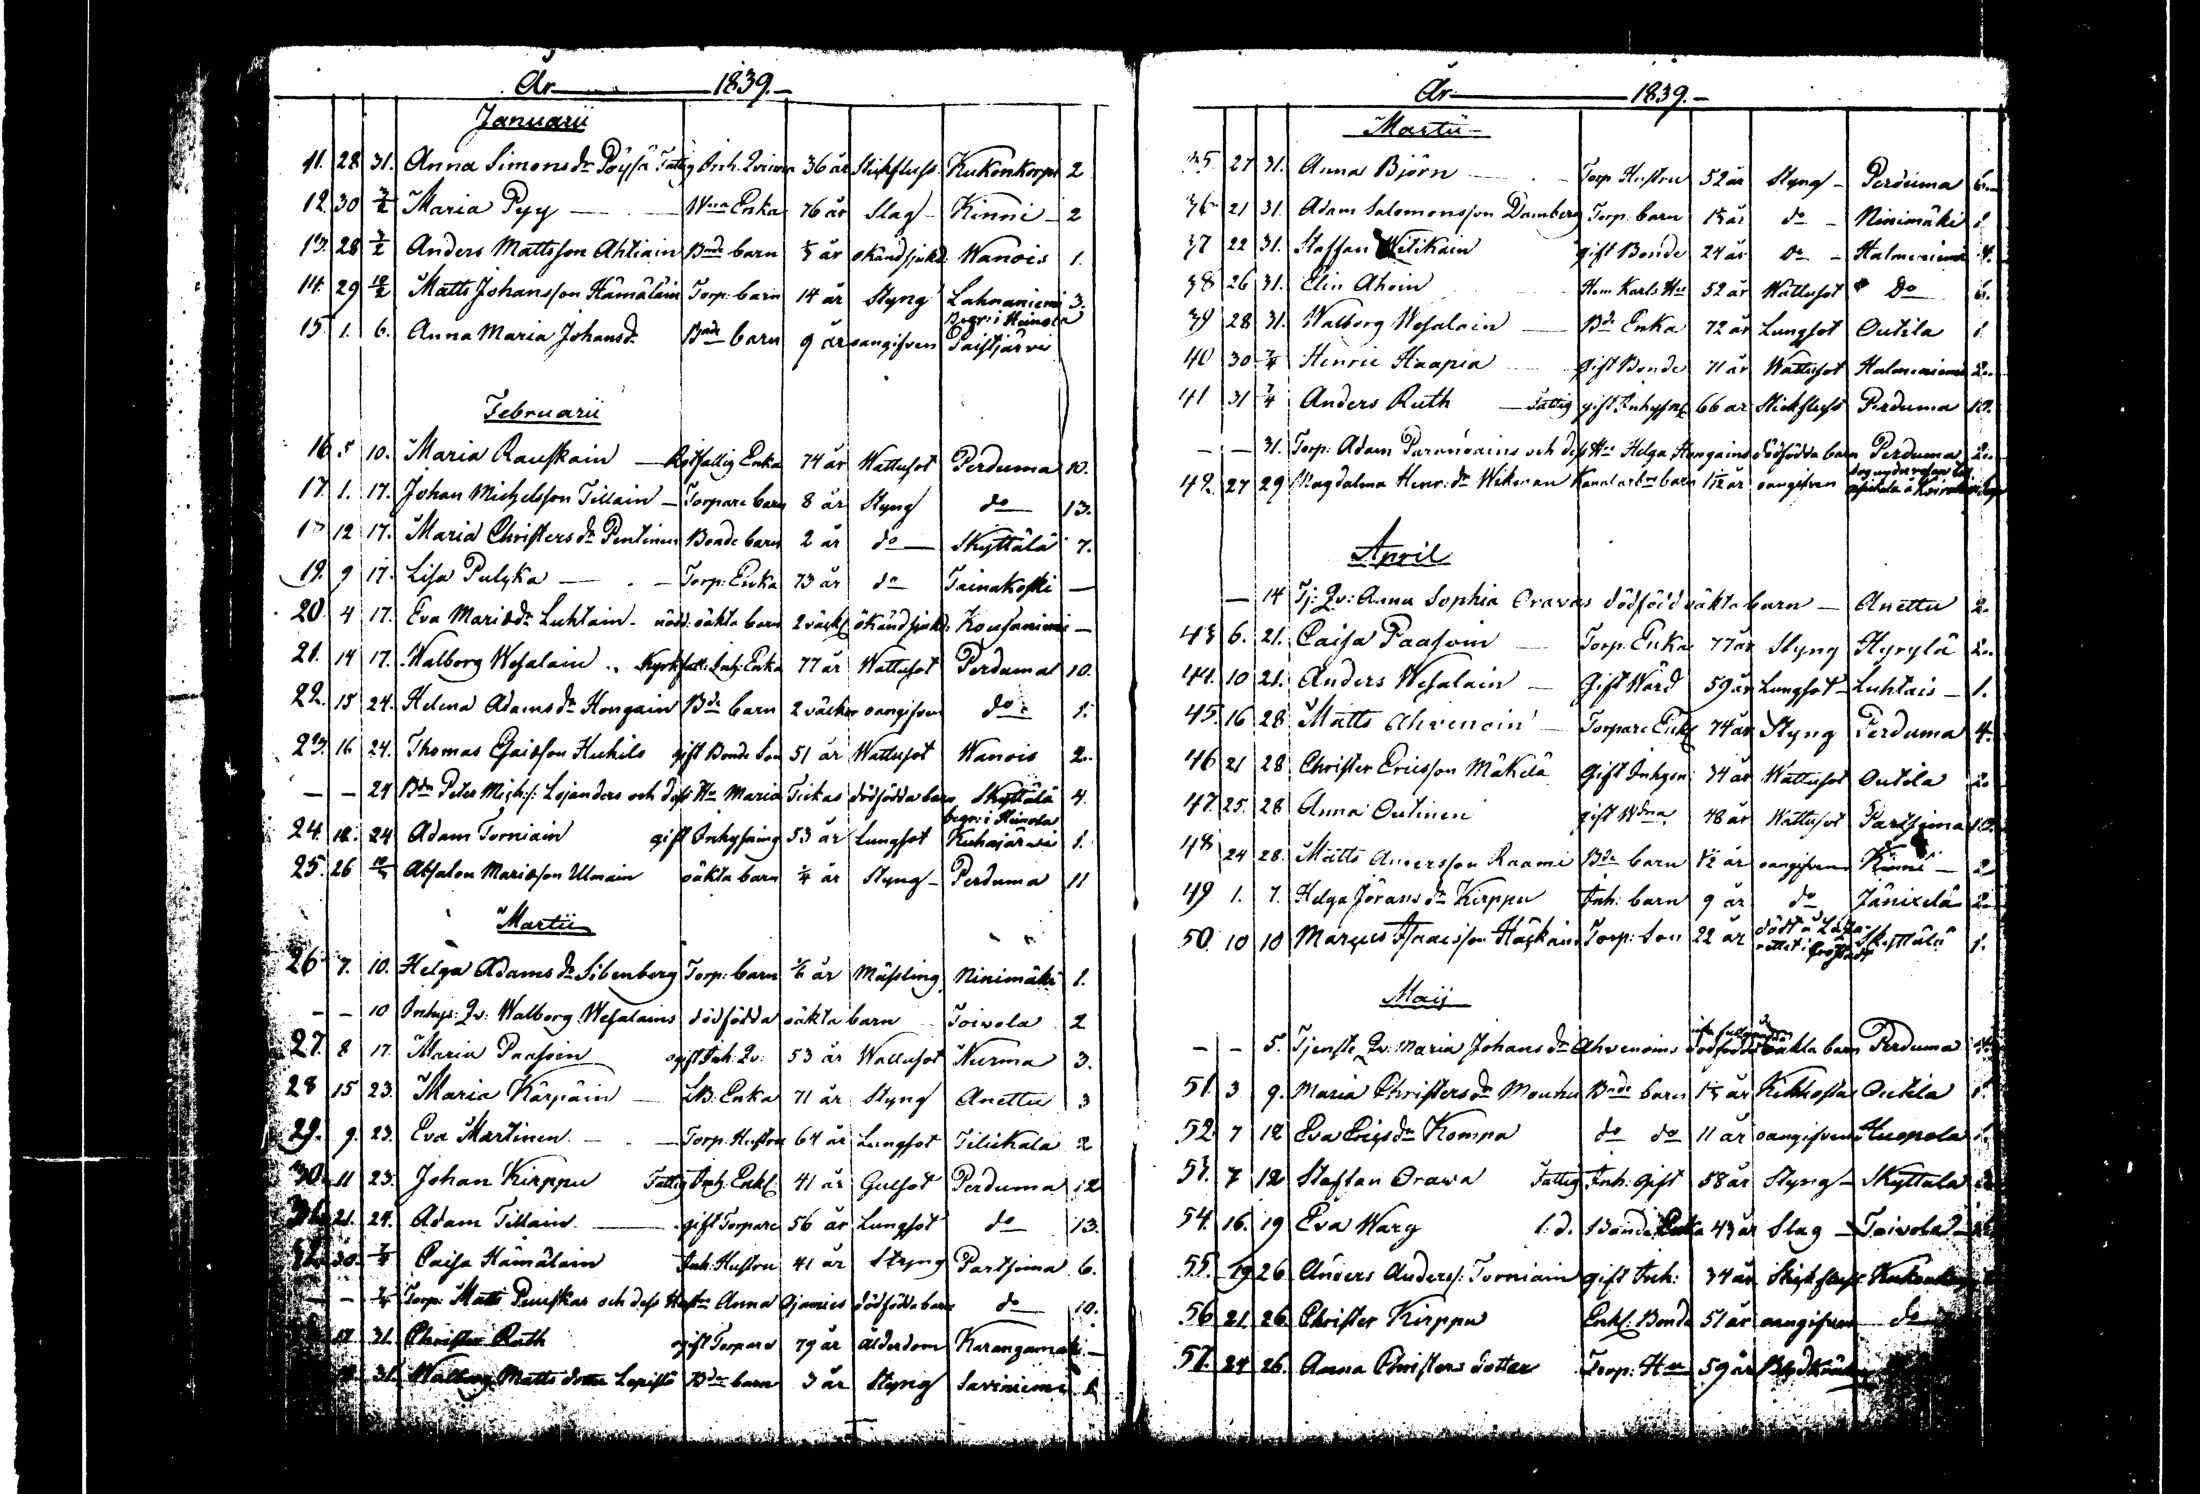 År 1839.
Januarii
11. 28 31. Anna Simonsdr Pöysä Fattig Inh. Qvinna 36 år Stickfluss Kukonkorpi 2
12. 30 3/2 Maria Pyy Enka 76 år Slag Kinni 2
13. 28 3/2 Anders Mattsson Ahtiain Bnde barn år okänd sjukd. Wanois 1.
14. 29 10/2 Matts Johansson Hämäläin Torp: barn 14 år Styng Lahnaniemi 3.
15. 1. 6. Anna Maria Johansdr Bnde barn 9 år oangifven Begr: i Heinola Paistjärvi
Februarii
16 5 10. Maria Rauskain Enka 74 år Wattusot Perduma 10.
17. 1. 17. Johan Michelsson Tillain Torpare barn 8 år Styng do 13.
12 17. Maria Christersdr Pentinen Bonde barn 2 år do Skyttälä 7.
19. 9 17. Lisa Pulska Torp: Enka 73 år do Tainakoski
20. 4 17. Eva Mariædr Luhtain oäkta barn 2 okänd sjukd.
21. 14 17. Walborg Wesalain Enka 77 år Wattusot Perduma 10.
22. 15 24. Helena Adamsdr Hongain Bde barn 2 veckor oangifven do 1.
23. 16 24. Thomas Kukila gift Bonde Son 51 år Wattusot Wanois 2.
24 Bdn Peter Mich:s: Lojanders och dess Hu Maria Tiekas dödfödda barn Skyttälä 4.
24. 18. 24 Adam Torniain gift Inhysning 53 år Lungsot begr: i Heinola Kuhajärvi 1.
25. 26 Absalon Mariæson Ulmain oäkta barn 1/4 år Styng Perduma 11
Martii
26 7. 10. Helga Adamsdr Sibenberg Torp: barn år Mässling Niinimäki 1.
10 Inhys: Qv: Walborg Wesalains dödfödda oäkta barn Toivola 2
27. 8 17. Maria Paasoin Inh: Qv: 53 år Wattusot Nurma 3.
28 15 23. Maria Kärpäin Enka 71 år Styng Anettu 3
29. 9. 23. Eva Martinen Torp. Hustru 64 år Lungsot Tilickala 2
30. 11 23. Johan Kirppu Fattig Inh. Enkl. 41 år Gulsot Perduma 12
21. 24. Adam Tillain gift Torpare 56 år Lungsot do 13.
30. 7/4 Caisa Hämäläin Inh. Hustru 41 år Styng Partsima 6.
7/4 Torp: Matts och dess Anna dödfödda barn do 10.
17 31. Christer Ruth gift Torpare 79 år ålderdom Karangamäki
31. Walborg Matts dotter Lepistö Bde barn 3 år Styng Saviniemi
År 1839.
Martii
35 27 31. Anna Björn Torp Hustru 52 år Styng Perduma 6.
36 21 31. Adam Salomonsson Damberg Torp: barn år do Niinimäki 1.
37 22 31. Staffan Witikain gift Bonde 24 år do Halmeniemi 4.
38 26 31. Elin Ahoin 52 år Wattusot Do 6.
39 28 31. Walborg Wesalain Bde Enka 72 år Lungsot Outila 1.
40 30 7/4 Henric Haapia gift Bonde 71 år Wattusot Halmeniemi 2.
41. 31 7/4 Anders Ruth Fattig gift 66 år Stickfluss Perduma 12.
31. Torp: Adam och dess Hu Helga Hongains dödfödda barn Perduma 2.
42. 27 29 Magdalena Henr:dr Wikman barn år oangifven
April
14 Tj: Qv: Anna Sophia Oravas dödfödd oäkta barn Anettu 2.
43 6. 21. Caisa Paasoin Torp: Enka 77 år Styng Hyrylä 2.
44. 10 21. Anders Wesalain Gift Wärd 59 år Lungsot Luhtais 1.
45. 16 28 Matts Ahvenoin Torpare Enkl 74 år Styng Perduma 4.
46 21 28 Christer Ericsson Mäkelä Gift 34 år Wattusot Outila 2.
47. 25. 28 Anna Outinen gift 48 år Wattusot Partsima 12.
48 24 28. Matts Andersson Raami Bde barn år oangifven Kinni 2
49 1. 7. Helga Jöransdr Kirppu Inh: barn 9 år do Jänixelä 2
50. 10 10 Marcus Isaacsson Häskäin Torp: Son 22 år Skyttälä 1.
Maij
5. Tjenste Qv: Maria Johansdr Ahvenoins dödfödde oäkta barn Perduma
51. 3 9. Maria Christersdr Mouhu Bnde barn år Kikhosta Outila 1.
52. 7 12 Eva Ericsdr Kompa do do 11 år oangifven Huopola 1.
53. 7 12 Staffan Orawa Fattig Inh: Gift 58 år Styng Skyttälä
54. 16. 19 Eva Wary Bonde Enka 43 år Slag Toivola
55. 19 26 Anders Anderss: Torniain gift Inh: 34 år Stickfluss Kukonkorpi
56 21. 26 Christer Kirppu Enkl. Bonde 51 år oangifven do
57. 24 26. Anna Christers dotter Torp: Hu 59 år